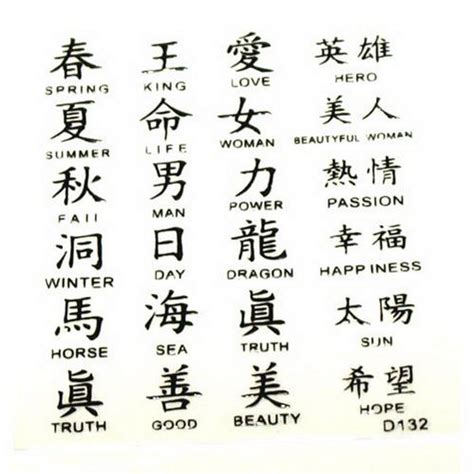 春 王 愛 英雄
SPRING KING LOVE HERO
夏 命 女 美人
SUMMER LIFE WOMAN BEAUTYFUL WOMAN
秋 男 力 熱情
FAII MAN POWER PASSION
洞 日 龍 幸福
WINTER DAY DRAGON HAPPINESS
馬 海 眞 太陽
HORSE SEA TRUTH SUN
眞 善 美 希望
TRUTH GOOD BEAUTY HOPE
D132